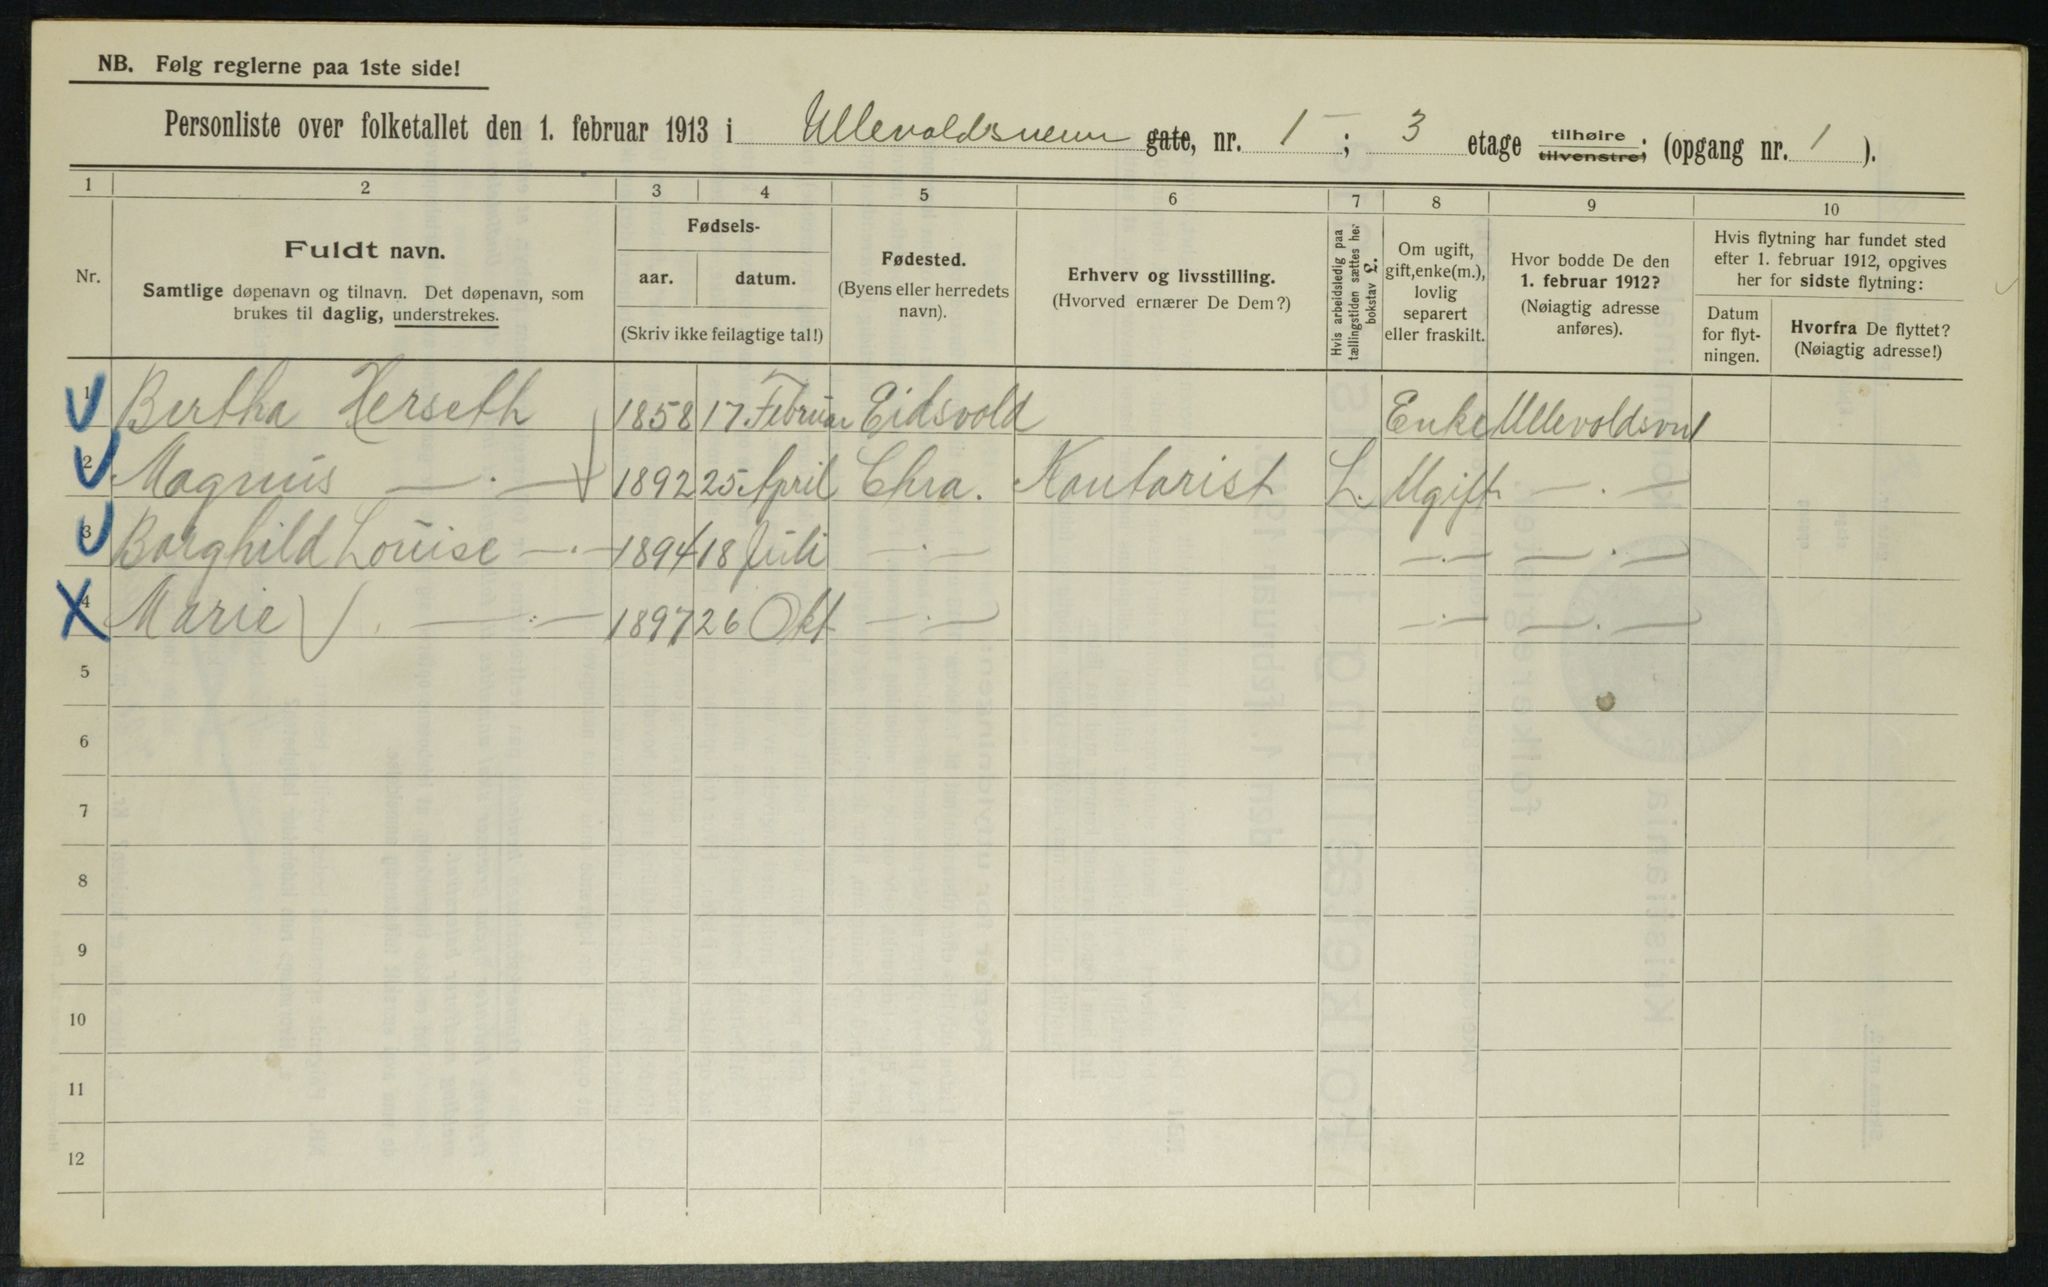 NB. Følg reglerne paa 1ste side!
Personliste over folketallet den 1. februar 1913 i Ullevoldsveien gate, nr. 1 ; 3 etage tilhøire tilvenstre; (opgang nr. 1 ).
1 2 3 4 5 6 7 8 9 10
Nr.
Fuldt navn.
Samtlige døpenavn og tilnavn. Det døpenavn, som
brukes til daglig, understrekes.
Fødsels-
aar. datum.
(Skriv ikke feilagtige tal!)
Fødested.
(Byens eller herredets
navn).
Erhverv og livsstilling.
(Hvorved ernærer De Dem?)
Hvis arbeidsledig paa
tællingstiden sættes her
bokstav L.
Om ugift,
gift, enke(m.),
lovlig
separert
eller fraskilt.
Hvor bodde De den
1. februar 1912?
(Nøiagtig adresse
anføres).
Hvis flytning har fundet sted
efter 1. februar 1912, opgives
her for sidste flytning:
Datum
for flyt-
ningen.
Hvorfra De flyttet?
(Nøiagtig adresse!)
1 Bertha Herseth 1858 17 Februar Eidsvold Enke Ullevoldsvn 1
2 Magnus — . — 1892 25 April Chra. Kontorist L. Ugift — . —
3 Borghild Louise — . — 1894 18 Juli — . — — . — — . —
4 Marie — . — 1897 26 Okt — . — — . — — . —
5
6
7
8
9
10
11
12